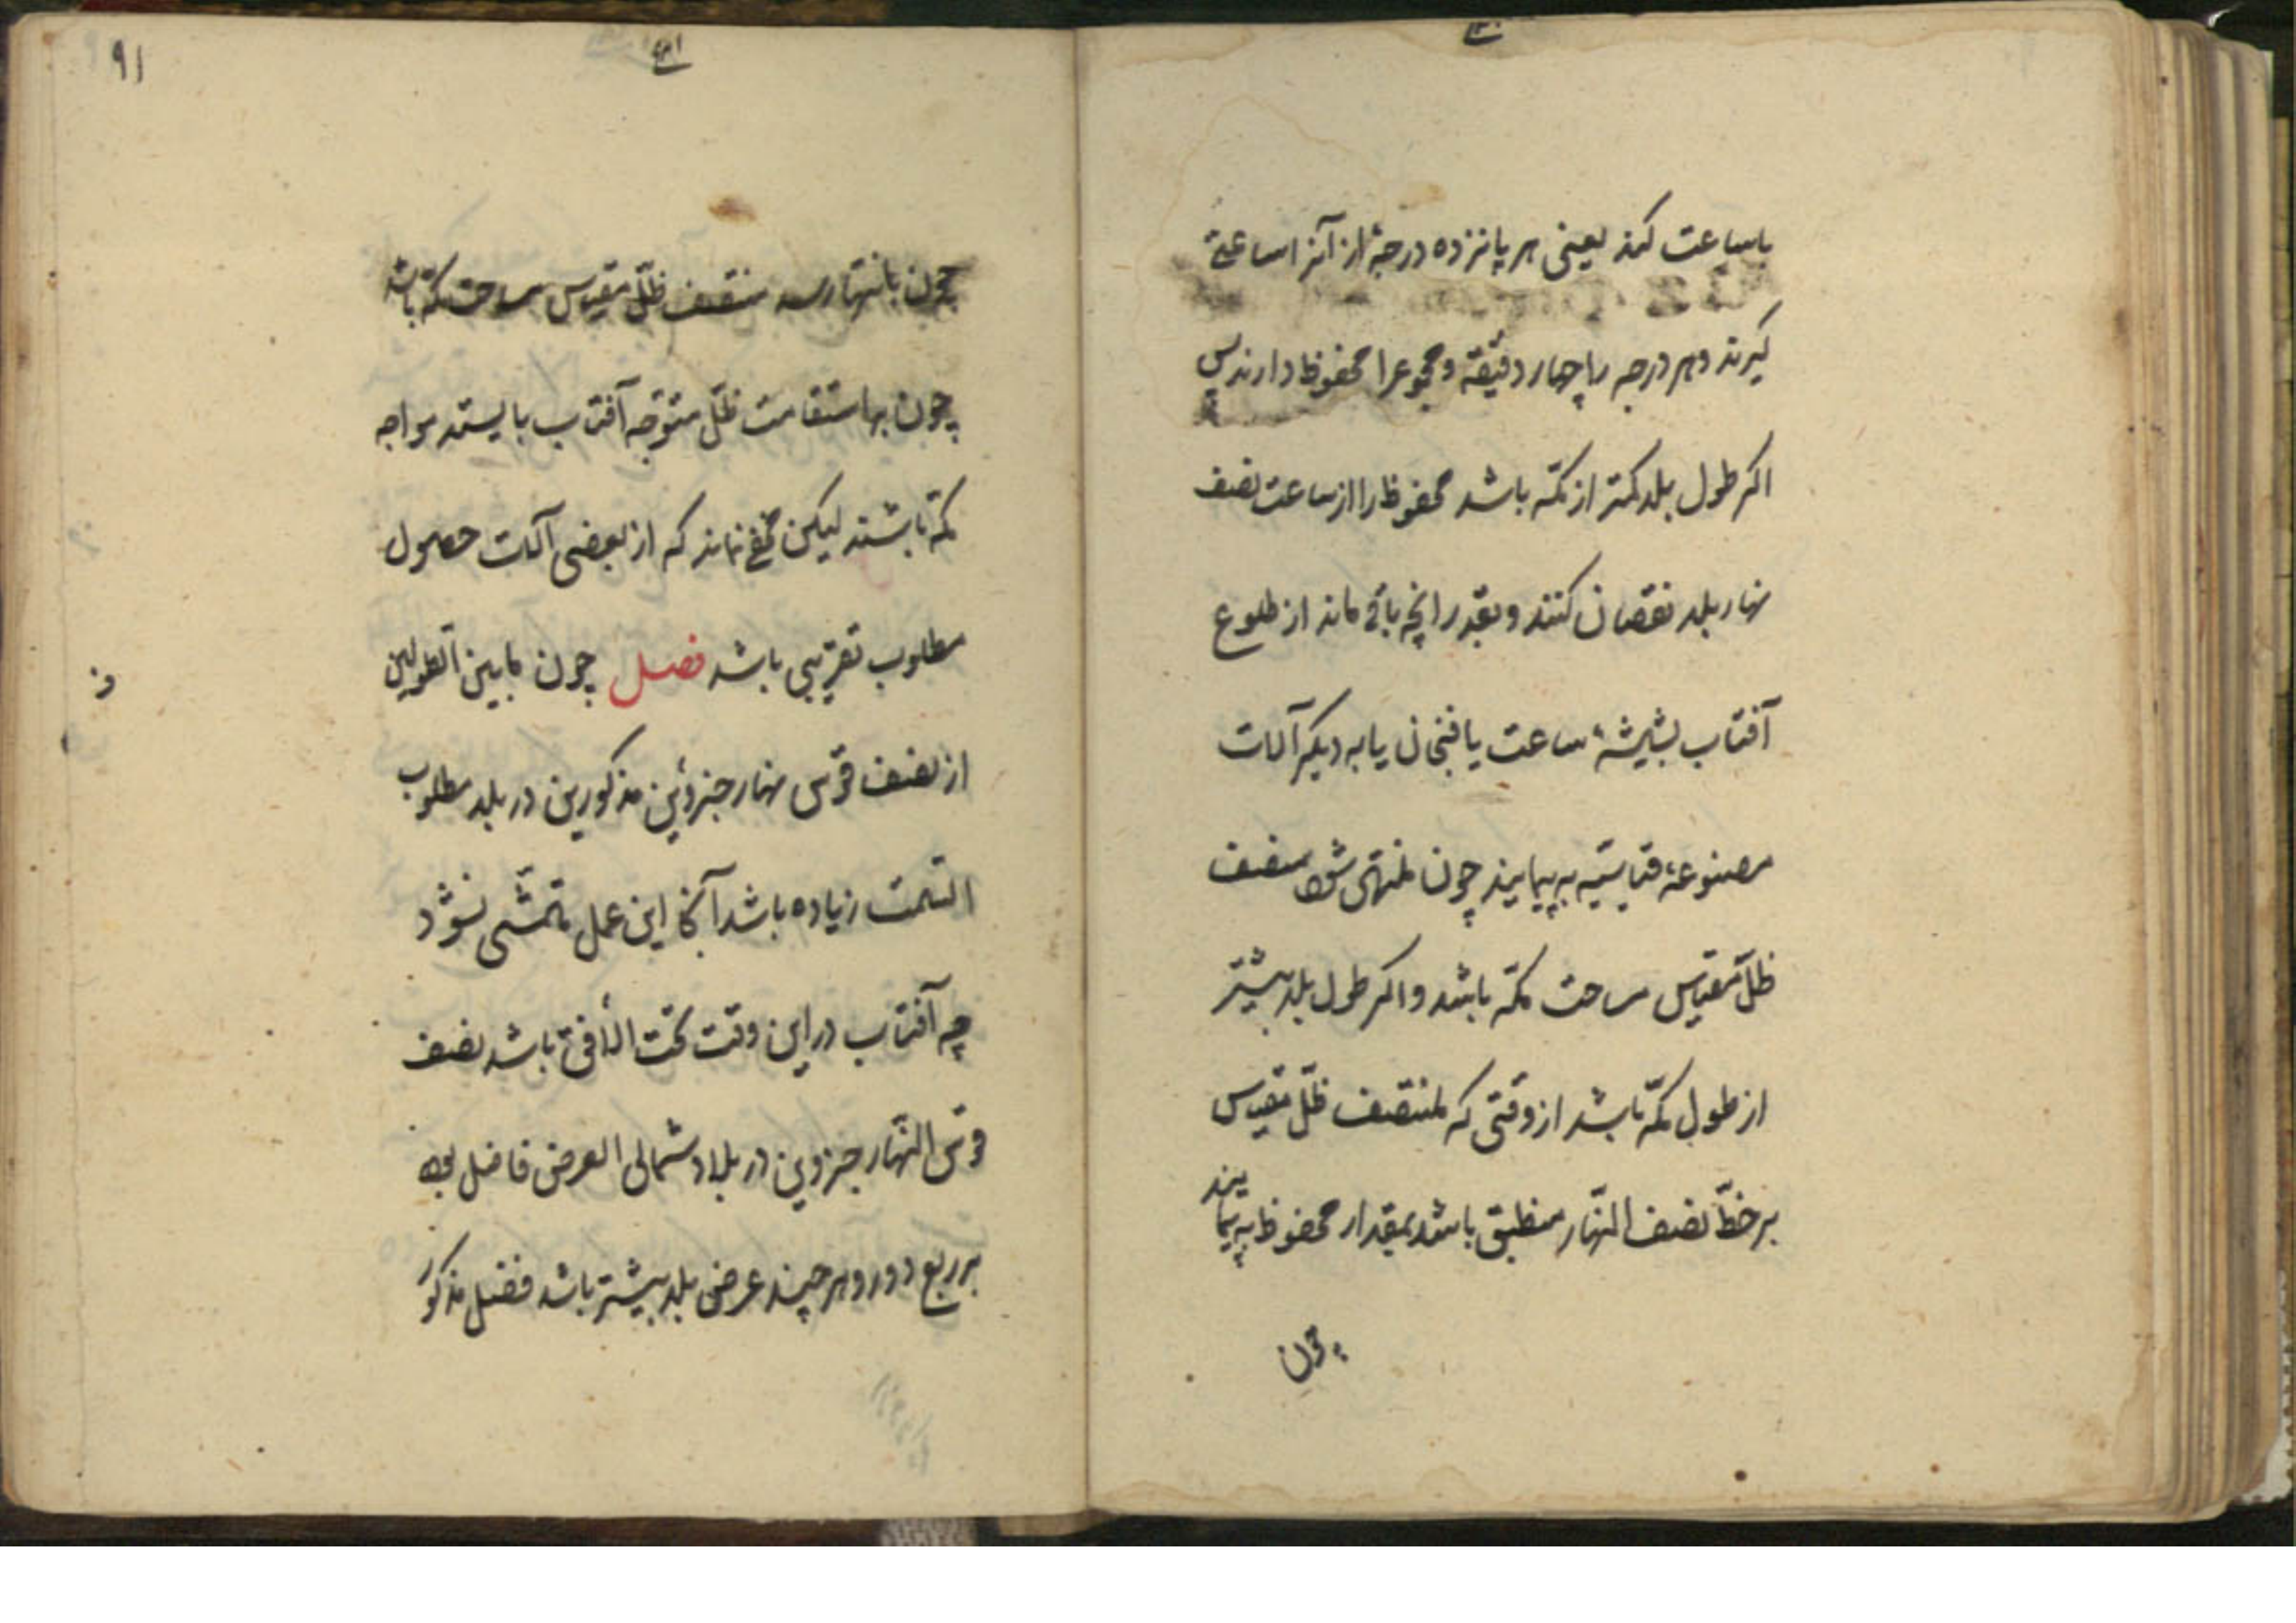 باساعت کنند یعنی هر پانزده درجهٔ از آنرا ساعتی
کیرند وهر درجه را چهار دقیقه و مجموعرا محفوظ دارند پس
اکر طول بلد کمتر از مکّه باشد محفوظ را از ساعت نصف
نهار بلد نقصان کنند و بقدر انچه باقی ماند از طلوع
آفتاب بشیشهٔ ساعت یا فنجان یا به دیکر آلات
مصنوعهٔ به پیمایند چون منتهی شود منصف
ظلّ مقیاس سمت مکّه باشد و اکر طول بلد بیشتر
از طول مکّه باشد از وقتی که منتصف ظلّ مقیاس
بر خطّ نصف النّهار منطبق باشد بمقدار محفوظ به پیمایند
چون
۹۱
چون بانتها رسد منتصف ظلّ مقیاس سمت مکّه باشد
چون بهاستقامت ظلّ متوّجه آفتاب بایستند مواجه
مکّه باشند لیکن مخفی نماند که از بعضی آلات حصول
مطلوب تقریبی باشد فصل چون مابین الطولین
از نصف قوس نهار جزوئین مذکورین در بلد مطلوب
السّمت زیاده باشد آنجا این عمل متمشّی نشود
چه آفتاب در این وقت تحت الأفق باشد نصف
قوس النّهار جزوین در بلاد شمالی العرض فاضل بود
بر ربع دور وهر چند عرض بلد بیشتر باشد فضل مذکور